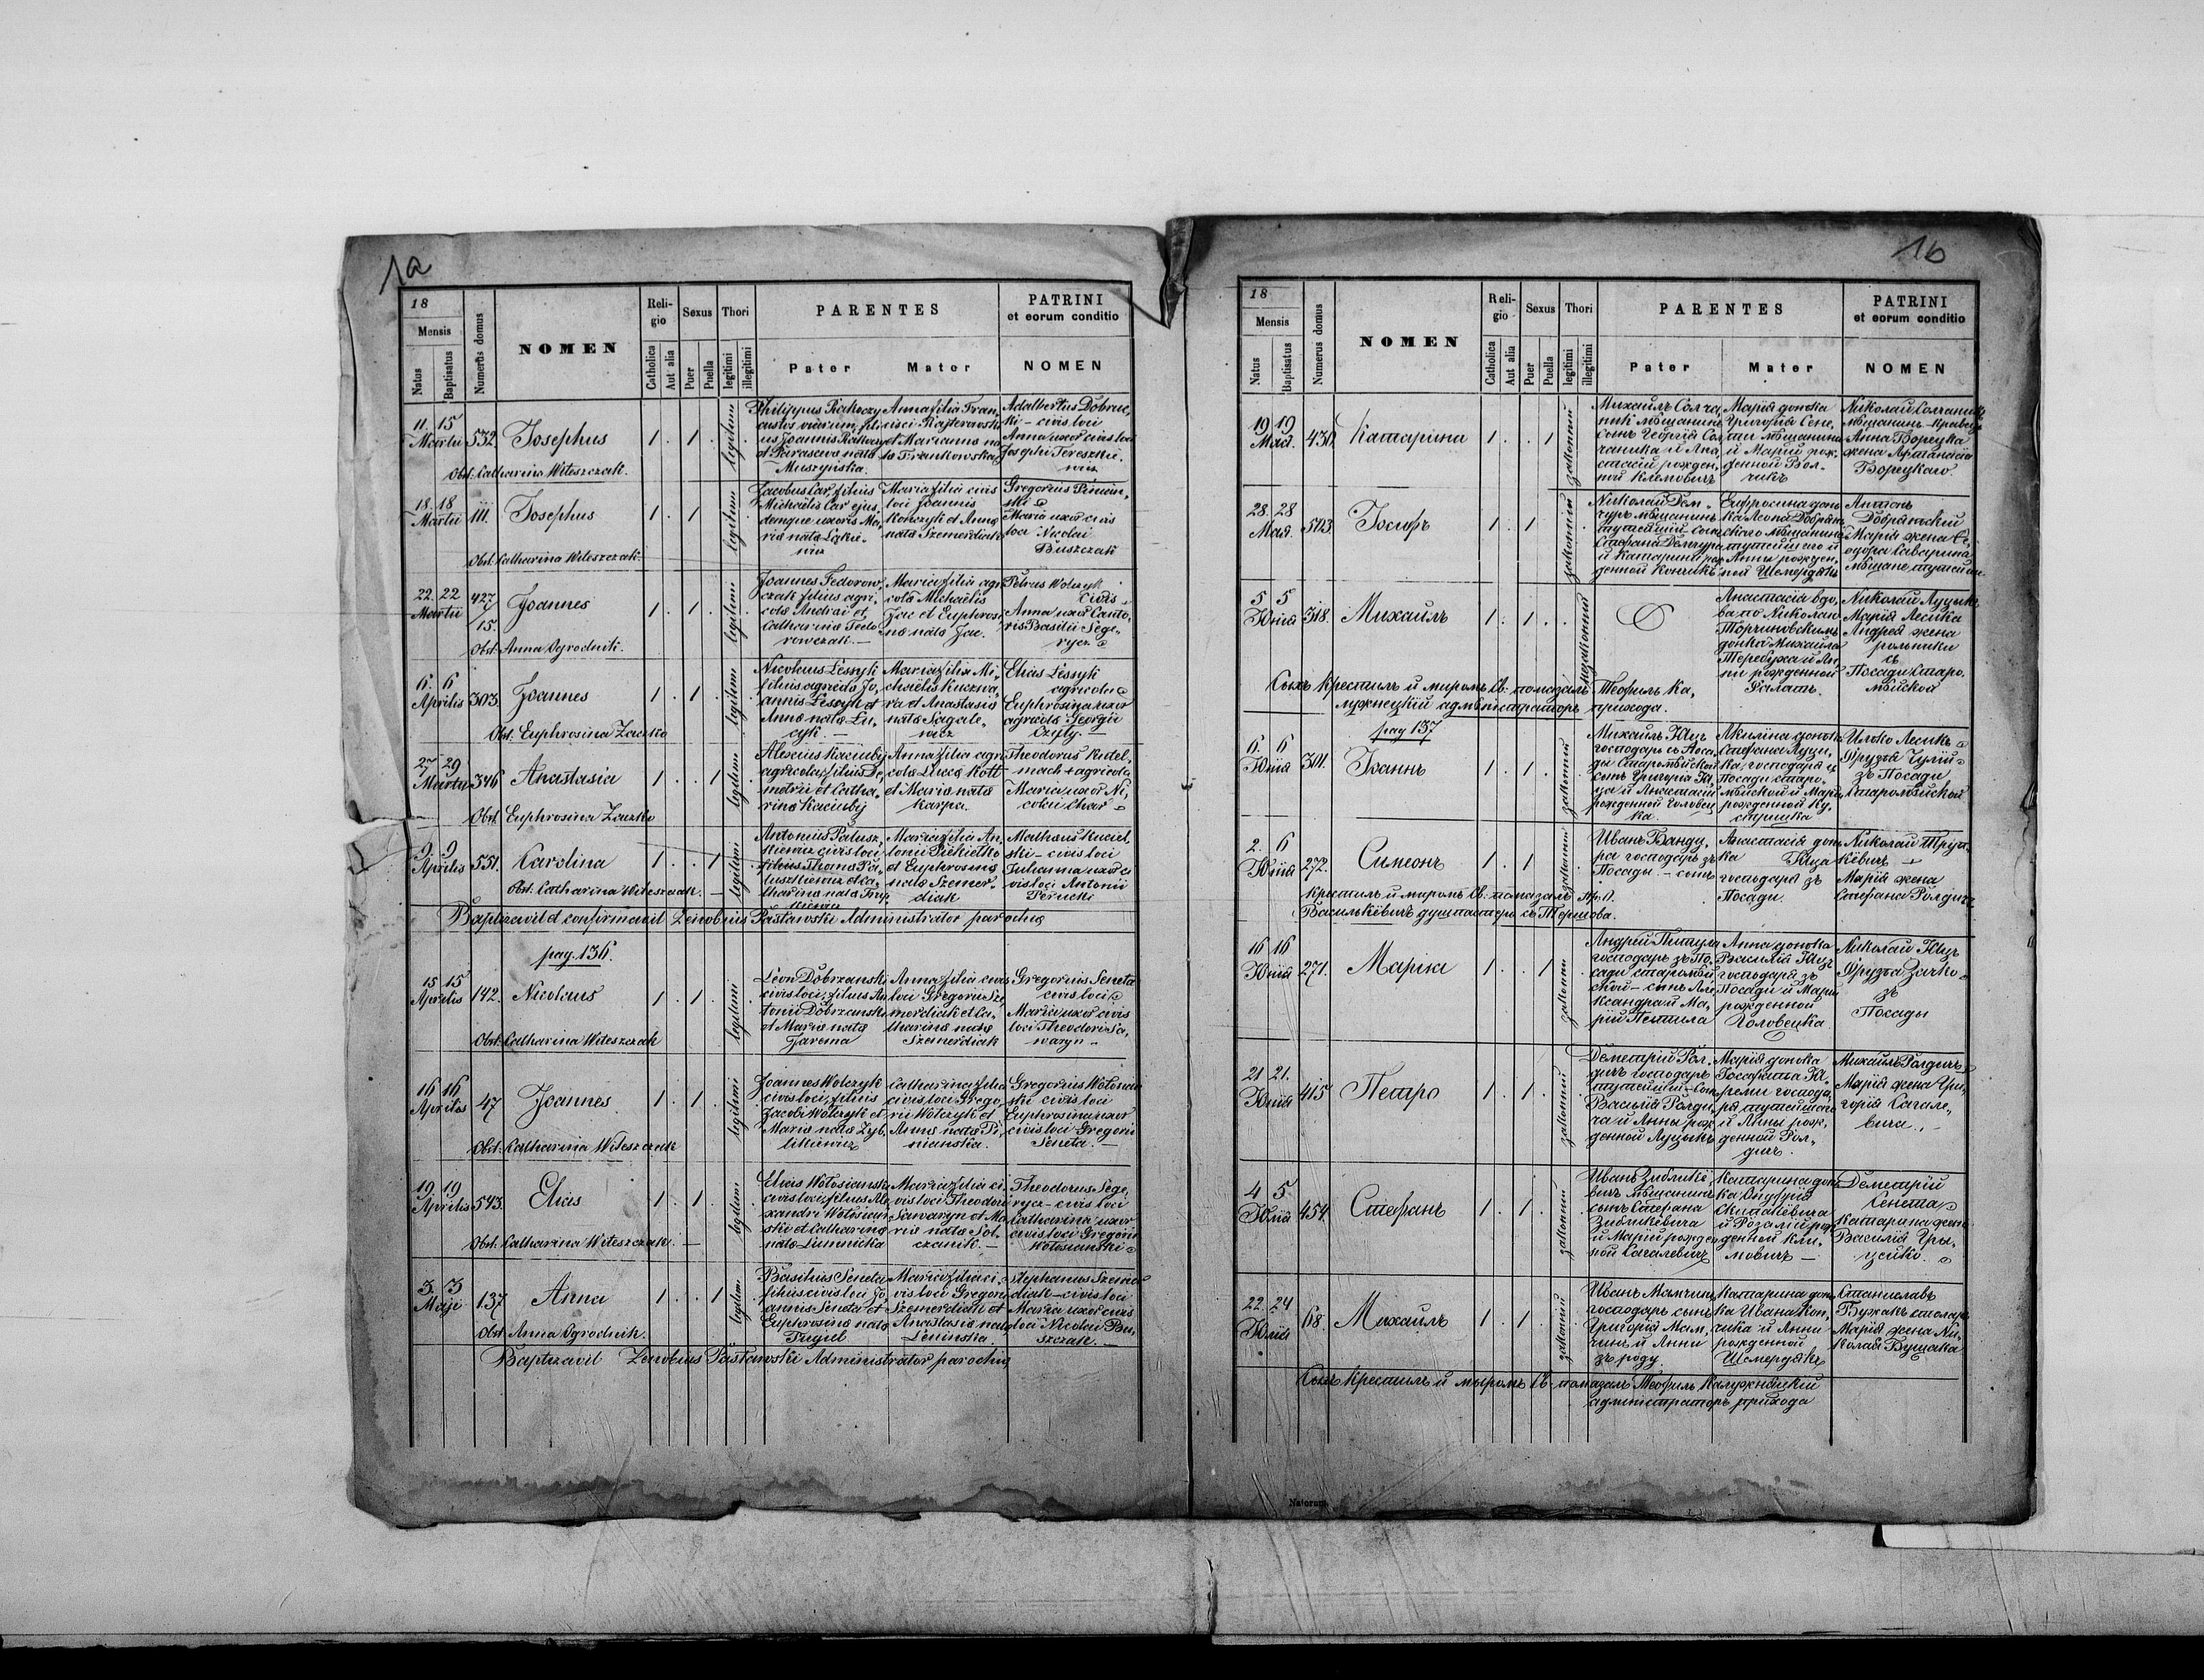 1a
18
Mensis
Natus
Baptisatus
Numerus domus
NOMEN
Reli-
gio
Catholica
Aut alia
Sexus
Puer
Puella
Thori
legitimi
illegitimi
PARENTES
Pater
Mater
PATRINI
et eorum conditio
NOMEN
11. 15
Martii
532
Josephus
1 . 1 .
legitimi
Philippus Rakoczy
custos viarum, fili-
us Joannis Rakoczy
et Parasceva nata
Muszyńska.
Anna filia Fran-
cisci Rajterowski
et Marianna na
ta Frankowska
Adalbertus Dobruc-
ki - civis loci
Anna uxor civis loci
Josephi Tereszkie-
wicz
Obst. Catharina Witeszczak.
18. 18
Martii
111.
Josephus
1 . 1 .
legitimi
Jacobus Car, filius
Michaëlis Car ejus-
demque uxoris Ma-
ria nata
Maria filia civis
loci Joannis
Konczyk et Anna
nata Szemerdiak
Gregorius
Maria uxor civis
loci Nicolai
Buszczak
Obst. Catharina Witeszczak.
22. 22
Martii
427/
15.
Joannes
1 . 1 .
legitimi
Joannes Fedorow-
czak filius agri-
cola Andrei et
Catharina Fedo-
rowczak. —
Maria filia agri
cola Michaëlis
Jac et Euphrosi
na nata Jac.
Petrus Wolczyk
civis
Anna uxor Canto-
ris Basilii Sege-
rycz
Obst. Anna Ogrodnik.
6. 6
Aprilis
303.
Joannes
1 . 1 .
legitimi
Nicolaus Lessyk
filius agricola Jo-
annis Lessyk et
Anna nata Lu-
cyk. —
Maria filia Mi-
chaëlis Kuczwa-
ra et Anastasia
nata Sagale-
wicz
Elias Lessyk
agricola
Euphrosina uxor
agricola Georgii
Czyly. —
Obst. Euphrosina Zaczko
27 29
Martii
346
Anastasia
1 . . 1
legitimi
Alexius Kaciubij
agricola, filius De-
metrii et Catha-
rina Kaciubij
Anna filia agri
cola Luca Kott
et Maria nata
Karpa.
Theodorus Kitel-
mach + agricola
Maria uxor Ni-
colai Char
Obst. Euphrosina Zaczko
9. 9
Aprilis
551.
Carolina
1 . . 1
legitimi
Antonius Palusz-
kiewicz civis loci
filius Thoma Pa-
luszkiewicz et Ca-
tharina nata
Maria filia An-
tonii Piekielko
et Euphrosina
nata Szemer-
diak
Mathaus Kuciel-
ski - civis loci
Julianna uxor ci
vis loci Antonii
Perucki
Obst. Catharina Witeszczak. —
Baptizavit et confirmavit Zenobius Pasławski Administrator parochus
pag. 136.
15 15
Aprilis
142.
Nicolaus
1 . 1 .
legitimi
Leon Dobrzanski
civis loci, filius An
tonii Dobrzanski
et Maria nata
Jarema
Anna filia civis
loci Gregorii Sze
merdiak et Ca-
tharina nata
Szemerdiak
Gregorius Seneta
civis loci
Maria uxor civis
loci Theodori Sa-
waryn
Obst. Catharina Witeszczak
16 16
Aprilis
47
Joannes
1 . 1 .
legitimi
Joannes Wolczyk
civis loci, filius
Jacobi Wolczyk et
Maria nata Zyb-
likiewicz
Catharina filia
civis loci Grego-
rii Wolczyk et
Anna nata Pi-
nianska.
Gregorius Wołosian
ski civis loci
Euphrosina uxor
civis loci Gregorii
Seneta. —
Obst. Catharina Witeszczak
19 19
Aprilis
543.
Elias
1 . 1 .
legitimi
Elias Wołosianski
civis loci, filius Ale
xandri Wołosian-
ski et Catharina
nata Lumnicka
Maria filia ci-
vis loci Theodori
Sawaryn et Ma
ria nata Sol-
czanik. —
Theodorus Sege-
rycz - civis loci
Catharina uxor
civis loci Gregorii
Wołosianski
Obst. Catharina Witeszczak. —
3. 3
Maji
137
Anna
1 . . 1
legitimi
Basilius Seneta
filius civis loci Jo-
annis Seneta et
Euphrosina nata
Tugiel
Maria filia ci-
vis loci Gregorii
Szemerdiak et
Anastasia nata
Leninska.
Stephanus Szemer
diak - civis loci
Maria uxor civis
loci Nicolai Bu-
szczak. —
Obst. Anna Ogrodnik.
Baptizavit Zenobius Pasławski Administrator parochus
1b
18
Mensis
Natus
Baptisatus
Numerus domus
NOMEN
Reli-
gio
Catholica
Aut alia
Sexus
Puer
Puella
Thori
legitimi
illegitimi
PARENTES
Pater
Mater
PATRINI
et eorum conditio
NOMEN
19 19
Мая.
430.
Катарина
1 . . 1
законнiи
Михаилъ Солча-
ник мѣщанинъ
сынъ Георгія Сол
чаника и Ана
стасіи рожден-
ной Климовичъ
Марія донька
Григорія Сене-
ти мѣщанина
и Маріи рож-
денной Вол-
чикъ
Николай Солчаникъ
мѣщанинъ - кравецъ
Анна Борецка
жена Афанасія
Борецкого
28. 28
Мая.
503.
Іосифъ
1 . 1 .
законнiи
Николай Дем-
чуръ мѣщанинъ
тутейшій - сынъ
Стефана Демчура
и Катарины рож
денной Кончикъ
Евфросина донь
ка Леона Добрян
ского мѣщанина
тутейшого и
Анны рожден-
ной Шемердякъ
Антонъ
Добрянскій
Марія жена Ѳе-
одора Саварина
мѣщане тутейши
5 5
Юнія
318.
Михаилъ
1 . 1 .
незаконнiи
Анастасія вдо-
ва по Николаи
Торчиновскимъ
донька Михаила
Теребуха и Ан-
ни рожденной
Галатъ.
Николай Луцыкъ
Марія Лесика
Андрея жена
рольники
съ
Посади Старо-
мѣйской
Сихъ крестилъ и миромъ Св. помазалъ Теофиль Ка-
лужнецкій администраторъ прихода.
pag 137
6. 6
Юнія
301.
Іоаннъ
1 . 1 .
законнiи
Михаилъ Яцъ
господарь съ Поса-
ди Старомѣйской
сынъ Григорія Я-
ца и Анастасіи
рожденной Головец
ка.
Акилина донька
Стефана Луци-
ка, господаря съ
Посади старо-
мѣйской и Маріи
рожденной Ку-
стришка
Илько Лесикъ
Фрузя Чулiй
зъ Посади
Старомѣйской
2. 6
Юнія
272.
Симеонъ
1 . 1 .
законнiи
Иванъ Банду-
ра господарь зъ
Посади - сынъ
Анастасія донь
ка Яца
господаря зъ
Посади.
Николай Труш-
кѣвичъ
Марія жена
Стефана Ролдича
Крестилъ и миромъ Св. помазалъ
Василькѣвичъ душпастырь съ Тершова.
16 16
Юнія
271.
Марія
1 . . 1
законнiи
Андрей Питула
господарь зъ По-
сади старомѣй-
ской - сынъ Але-
ксандра и Ма-
ріи Питула
Анна донька
Василія Яцъ
господаря зъ
Посади и Маріи
рожденной
Головецка.
Николай Яцъ
Фрузя Зачко
зъ
Посады
21 21.
Юнія
415
Петро
1 . 1 .
законнiи
Деметрій Рол-
дичъ господарь
тутейшій - сынъ
Василія Ролди-
ча и Анны рож
денной Луцыкъ
Марія донька
Іосафата Я-
реми господа-
ря тутейшого
и Анны рож-
денной Рол-
дичъ.
Михаилъ Ролдичъ
Марія жена Гри-
горія Сагале-
вича.
4 5
Юлія
454.
Стефанъ
1 . 1 .
законнiи
Иванъ Зибликѣ-
вичъ мѣщанинъ
сынъ Стефана
Зибликѣвича
и Маріи рожден
ной Сагалевичъ
Катарина донь
ка Онуфрія
и Розаліи рож
денной Кли-
мовичъ —
Деметрій
Сенета
Катарина жена
Василія Гры-
цейко.
22. 24
Юлія
68.
Михаилъ
1 . 1 .
законнiи
Иванъ Мамчинъ
господарь сынъ
Григорія Мам-
чинъ и Анни
зъ роду
Катарина донь
ка Ивана Кон-
чика и Анни
рожденной
Шемердякъ
Станиславъ
Бужакъ столяръ
Марія жена Ни-
колая Бущака
Сихъ крестилъ и миромъ Св. помазалъ Теофиль Калужнѣцкій
администраторъ прихода
Natorum.